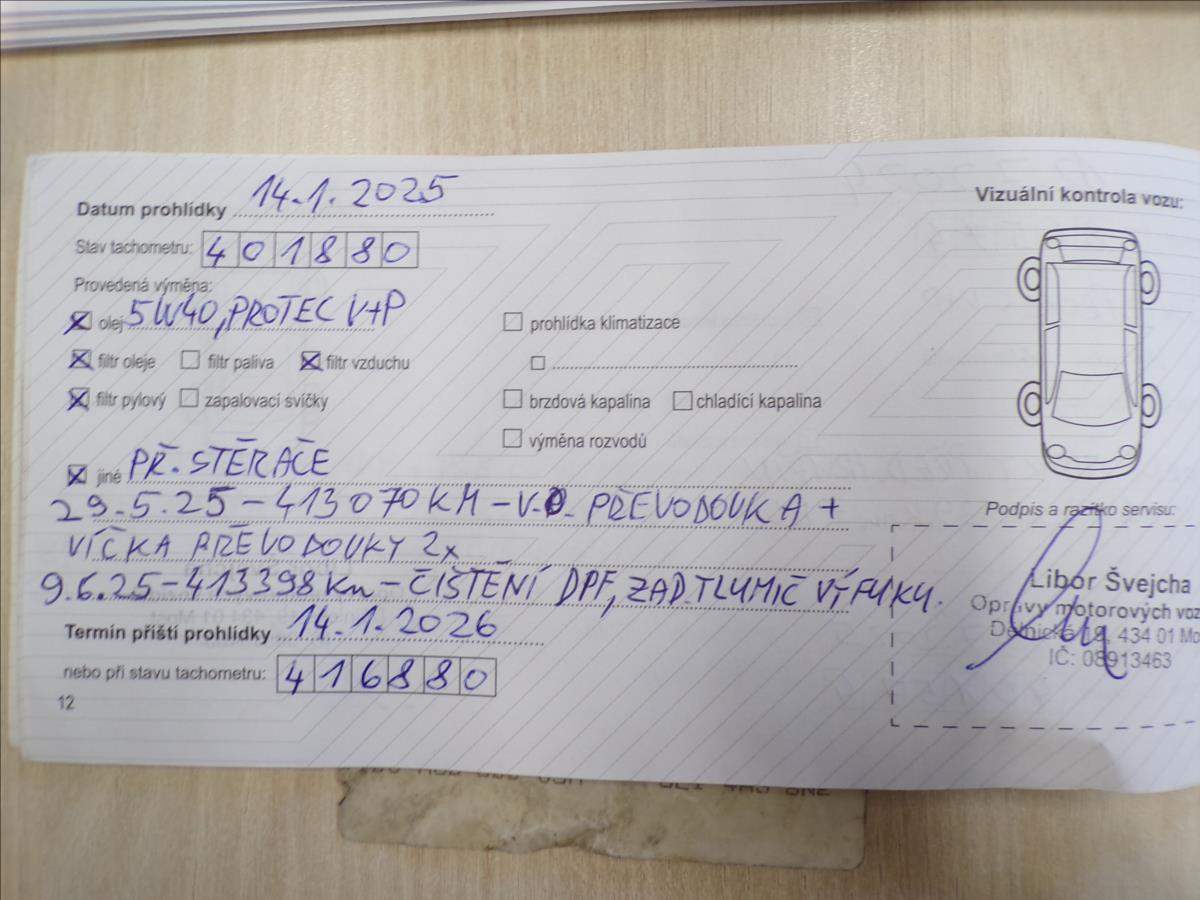 Datum prohlídky 14.1.2025
Vizuální kontrola vozu:
Stav tachometru: 401880
Provedená výměna:
olej 5W40, PROTEC V+P
prohlídka klimatizace
filtr oleje filtr paliva filtr vzduchu
filtr pylový zapalovací svíčky
brzdová kapalina chladící kapalina
výměna rozvodů
jiné PŘ. STĚRAČE
29.5.25 - 413070 KM - V.O. PŘEVODOVKA +
VÍČKA PŘEVODOVKY 2x
9.6.25 - 413398 Km - ČIŠTĚNÍ DPF, ZAD. TLUMIČ VÝFUKU.
Podpis a razítko servisu:
Libor Švejcha
Opravy motorových voz
Dělnická 19, 434 01 Mo
IČ: 08913463
Termín příští prohlídky 14.1.2026
nebo při stavu tachometru: 416880
12